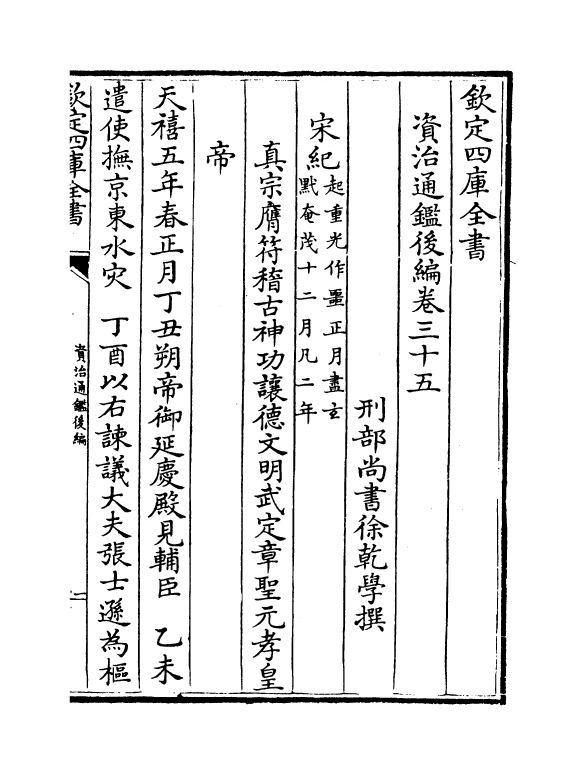 欽定四庫全書
資治通鑑後編卷三十五
刑部尚書徐乾學撰
宋紀起重光作噩正月盡玄
黓奄茂十二月凡二年
真宗膺符稽古神功讓德文明武定章聖元孝皇
帝
天禧五年春正月丁丑朔帝御延慶殿見輔臣　乙未
遣使撫京東水灾　丁酉以右諫議大夫張士遜為樞
欽定四庫全書
資治通鑑後編
一